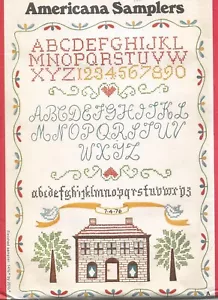 Americana Samplers
ABCDEFGHIJKL
MNOPQRSTUVW
XYZ1234567890
ABCDEFGHIJKL
MNOPQRSTUV
XYZ
abcdefghijklmnopqrstuvwxyz
7-4-76